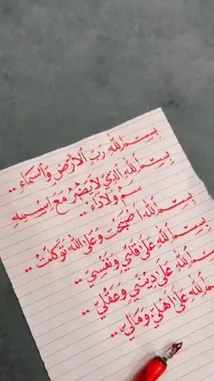 بسم الله رب الأرض والسماء ..
بسم الله الذي لا يضر مع اسمه
سم ولا داء ..
بسم الله أصبحت وعلى الله توكلت ..
بسم الله على قلبي ونفسي ..
بسم الله على ديني وعقلي ..
بسم الله على أهلي ومالي ..